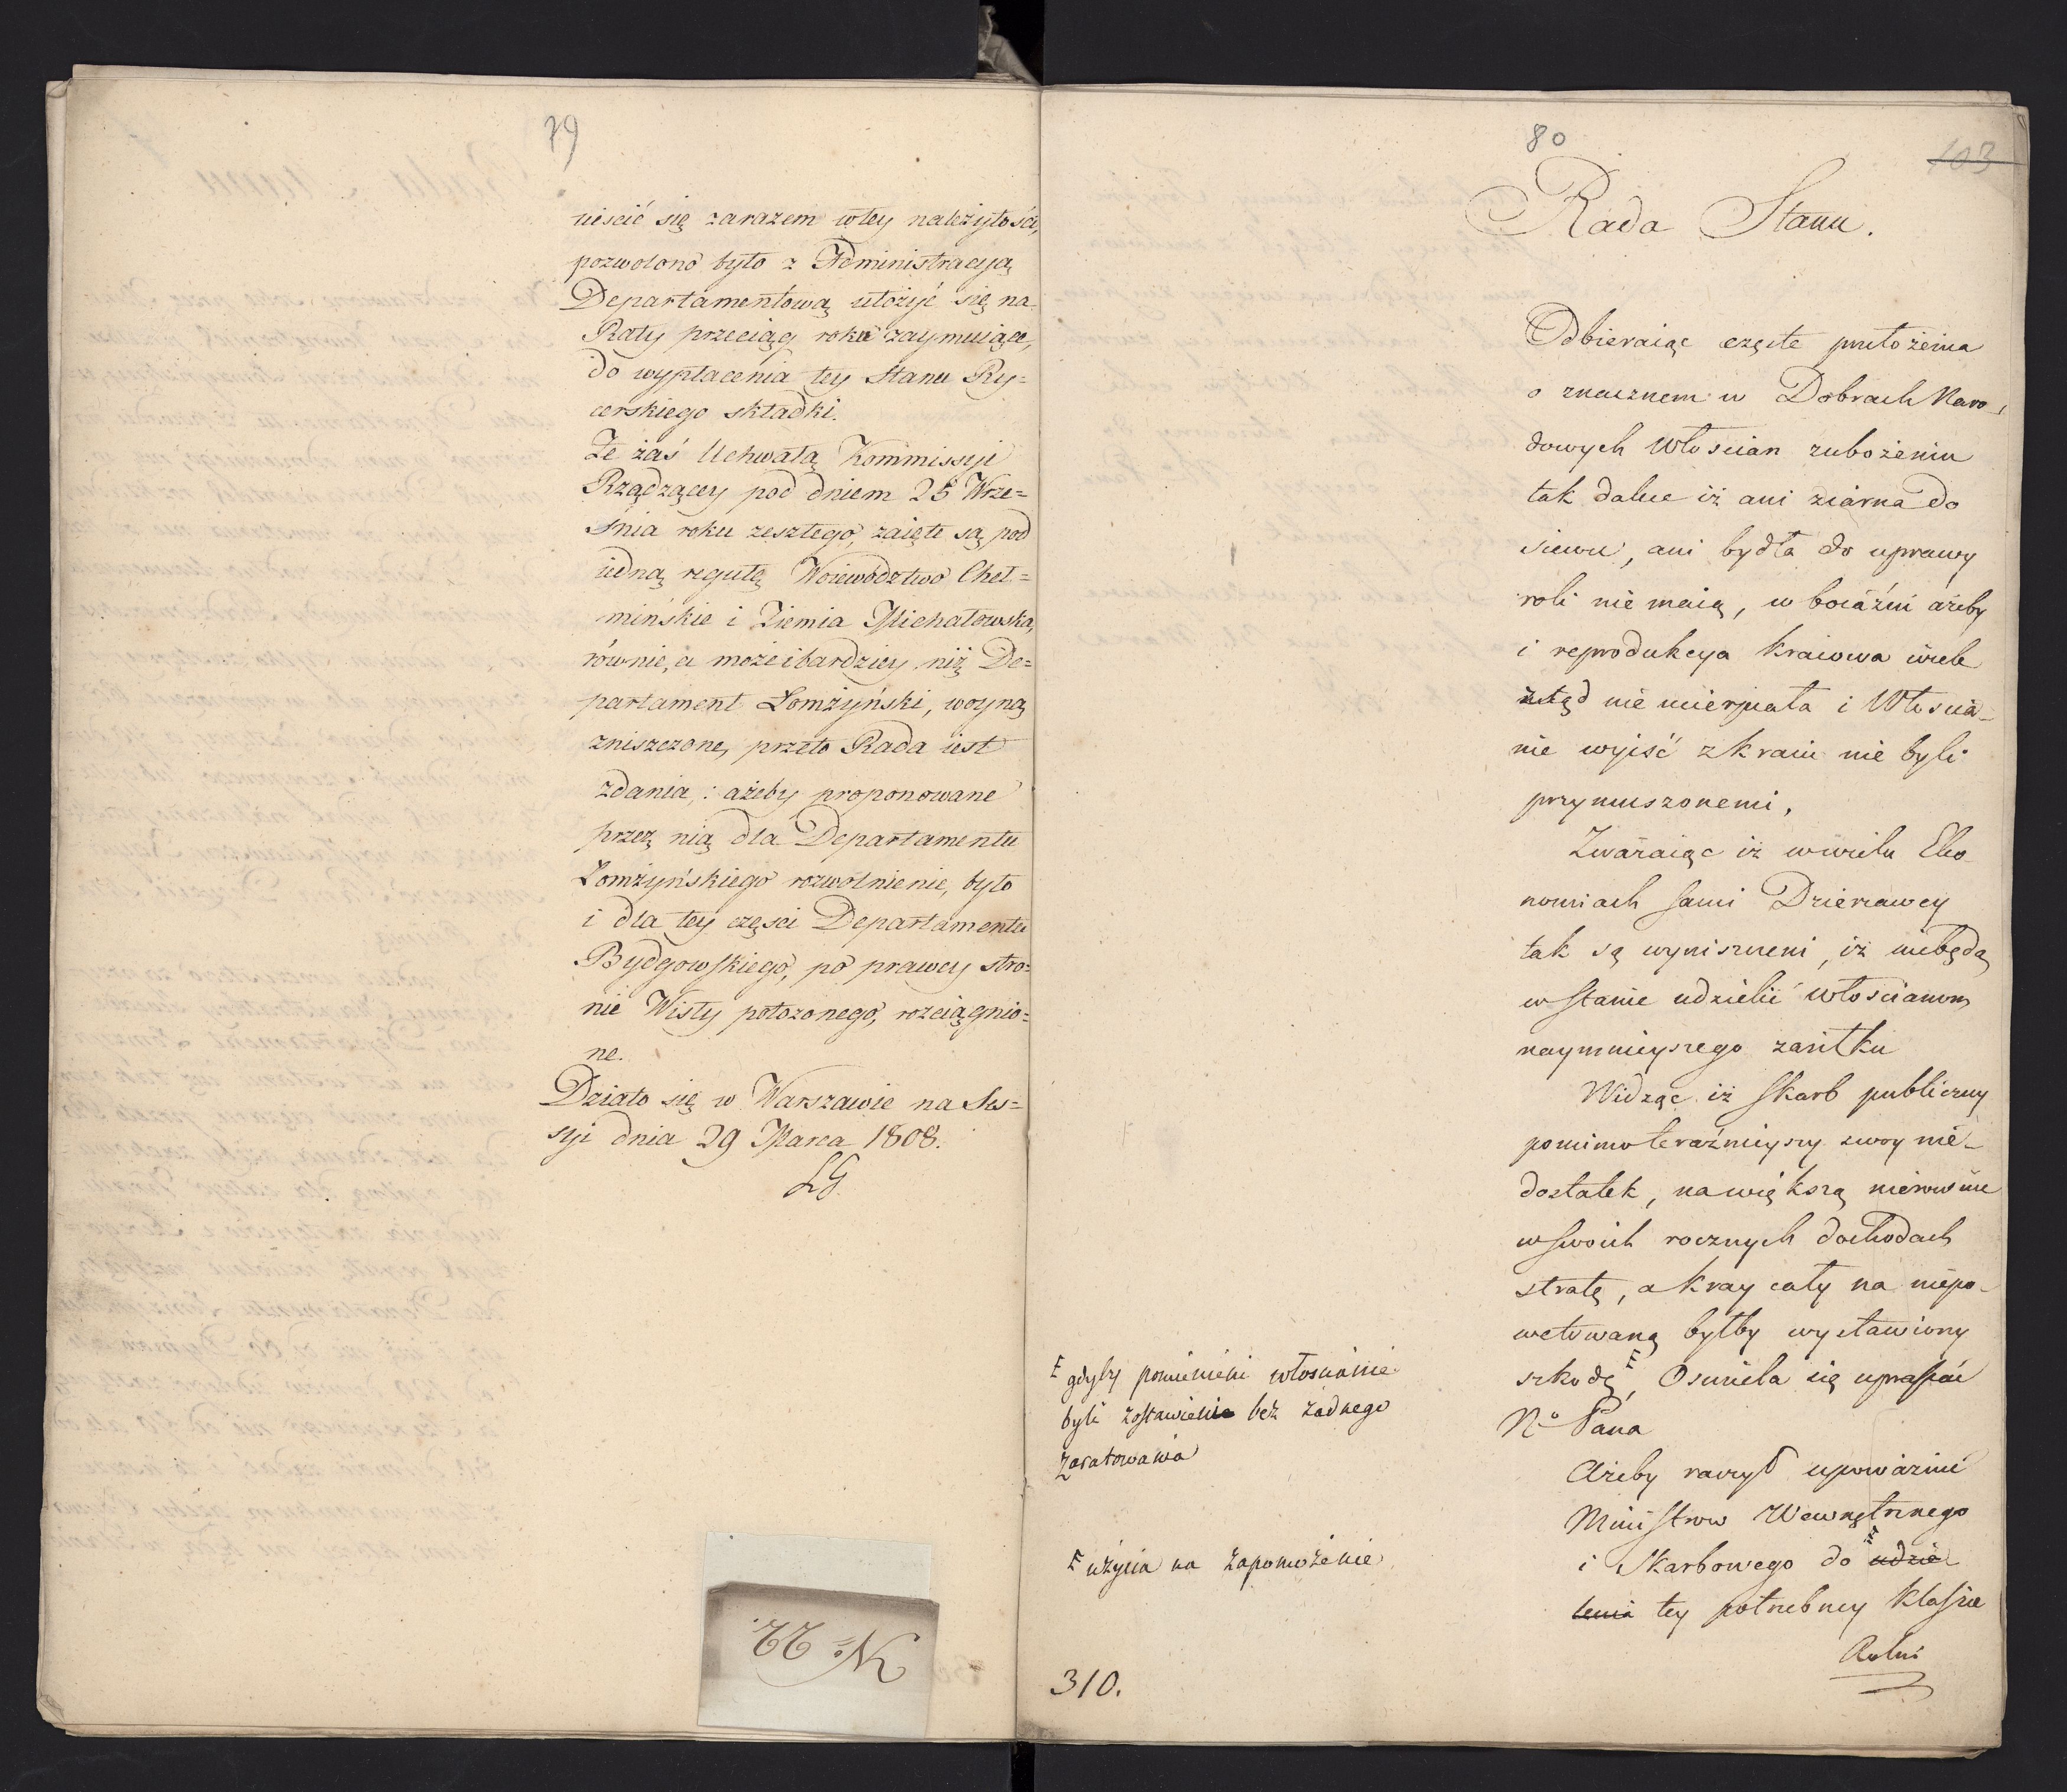 79
uiścić się zarazem w tey należytości,
pozwolono było z Administracyą
Departamentową ułożyć się na
Raty przeciąg roku zaymuiące,
do wypłacenia tey Stanu Ry=
cerskiego składki.
Że zaś Uchwałą Kommissyi
Rządzącey pod dniem 25 Wrze=
śnia roku zeszłego, zaięte są pod
iedną regułę Woiewództwo Cheł=
mińskie i Ziemia Michałowska,
równie, a może i bardziey niż De=
partament Łomżyński, woyną
zniszczone, przeto Rada iest
zdania: ażeby proponowane
przez nią dla Departamentu
Łomżyńskiego rozwolnienie, było
i dla tey części Departamentu
Bydgowskiego, po prawey stro=
nie Wisły położonego, rozciągnio=
ne.
Działo się w Warszawie na Ses=
syi dnia 29 Marca 1808.
LG
No 22.
80
103
Rada Stanu.
Odbieraiąc częste przełożenia
o znacznem w Dobrach Naro-
dowych Włościan zubożeniu
tak dalece iż ani ziarna do
siewu, ani bydła do uprawy
roli nie maią, w boiaźni ażeby
i reprodukcya kraiowa wiele
ztąd nie ucierpiała i Włościa-
nie wyiść z kraiu nie byli
przymuszonemi,
Zważaiąc iż w wielu Eko-
nomiach sami Dzierżawcy
tak są wyniszczeni, iż niebędą
w stanie udzielić włościanom
naymnieyszego zasiłku
Widząc iż Skarb publiczny
pomimo teraźnieyszy swoy nie-
dostatek, na większą nierównie
w swoich rocznych dochodach
stratę, a kray cały na niepo-
wetowaną byłby wystawiony
szkodę, Ośmiela się upraszać
No Pana
Ażeby raczył upoważnić
Ministrow Wewnętrznego
i Skarbowego do udzie
lenia tey potrzebney klassie
Rolni
gdyby pomienieni włościanie
byli zostawieni bez żadnego
zaratowania
użycia na zapomożenie
310.